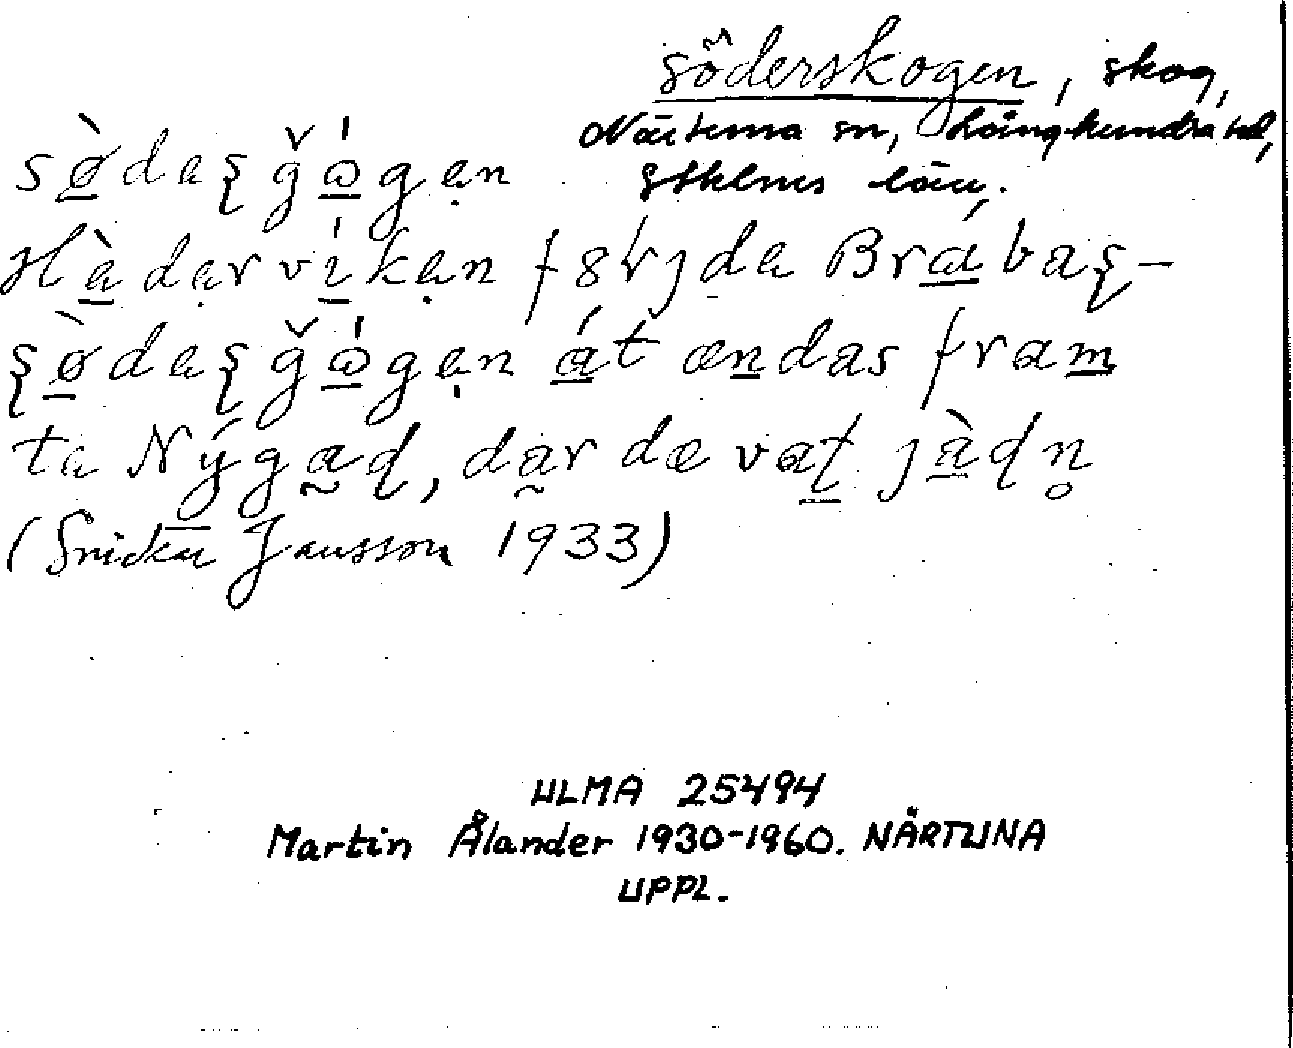 Söderskogen, skog,
Närtuna sn, Långhundra hd,
Sthlms län.
sø̀daʂ ǧǿgən
Hàdərvíkən føljda Brábaʂ-
ʂø̀daʂ ǧǿgən át ændas fram
ta Nýgaɖ, dar dæ vaʈ jàɖn̥
(Snickar Jansson 1933)
ULMA 25494
Martin Ålander 1930-1960. NÄRTUNA
UPPL.